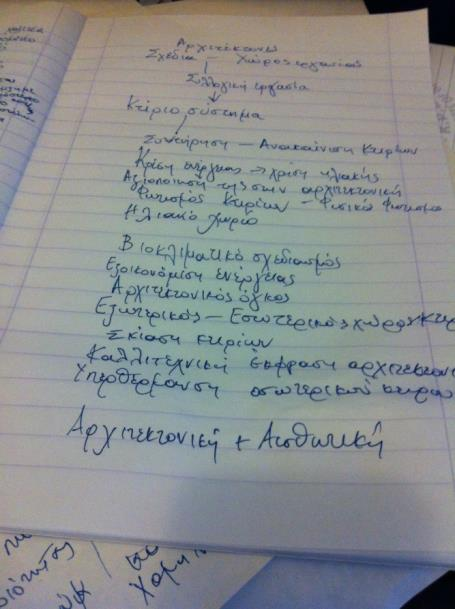 Αρχιτέκτονω
Σχέδια – Χώρος εργασίας
Συλλογική εργασία
Κτίριο, σύστημα
Συντήρηση – Ανακαίνιση κτιρίων
ενέργειας → χρήση ηλιακής
Αξιοποίηση της στην αρχιτεκτονική
Φωτισμός Κτιρίων – Φυσικό φωτισμο
Ηλιακό χωριό
Βιοκλιματικό σχεδιασμός
Εξοικονόμιση ενέργειας
Αρχιτεκτονικός όγκος
Εξωτερικός – Εσωτερικός χώρος κτιρ
Σκίαση κτιρίων
Καλλιτεχνική έκφραση αρχιτεκτον
Υπερθέρμανση εσωτερικού κτιρίου
Αρχιτεκτονική + Αισθητική